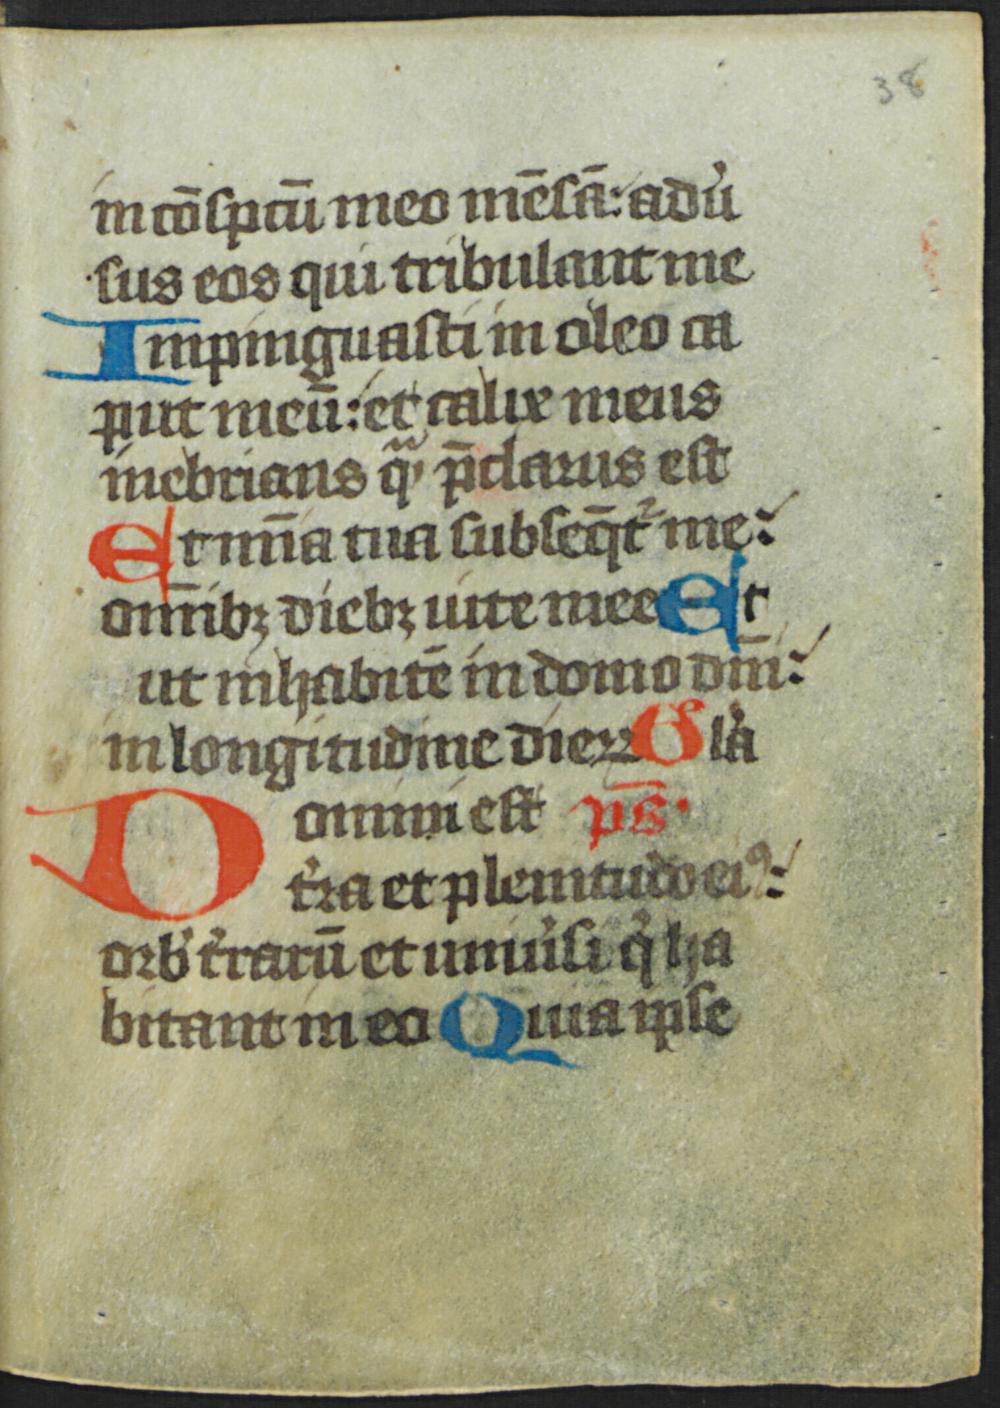 38
in cōſpcū meo mēſā: adu̾
ſus eos qui tribulant me
Impinguaſti in oleo ca
put meū: et calix meus
inebrians qͣ̃ p̄clarus eſt
Et mīa tua ſubſeq̄t᷑ me:
om̄ibꝫ diebꝫ uite mee Et
ut inhabitē in domo dn̄i:
in longitudine dieꝝ Gl̾a
Domini eſt p̄s·
t̾ra et plenitudo eiꝰ:
orb̾ t̾rarū et uniu̾ſi qͥ ha
bitant in eo Quia ipſe